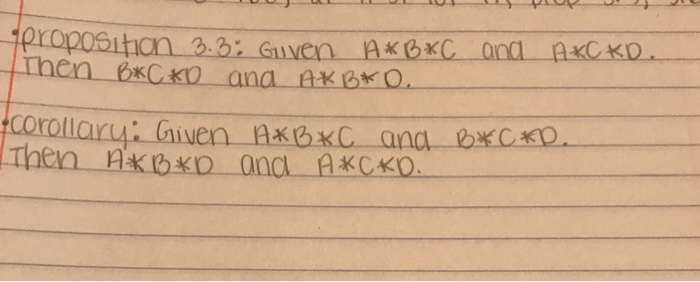 proposition 3.3: Given A*B*C and A*C*D.
Then B*C*D and A*B*D.
corollary: Given A*B*C and B*C*D.
Then A*B*D and A*C*D.